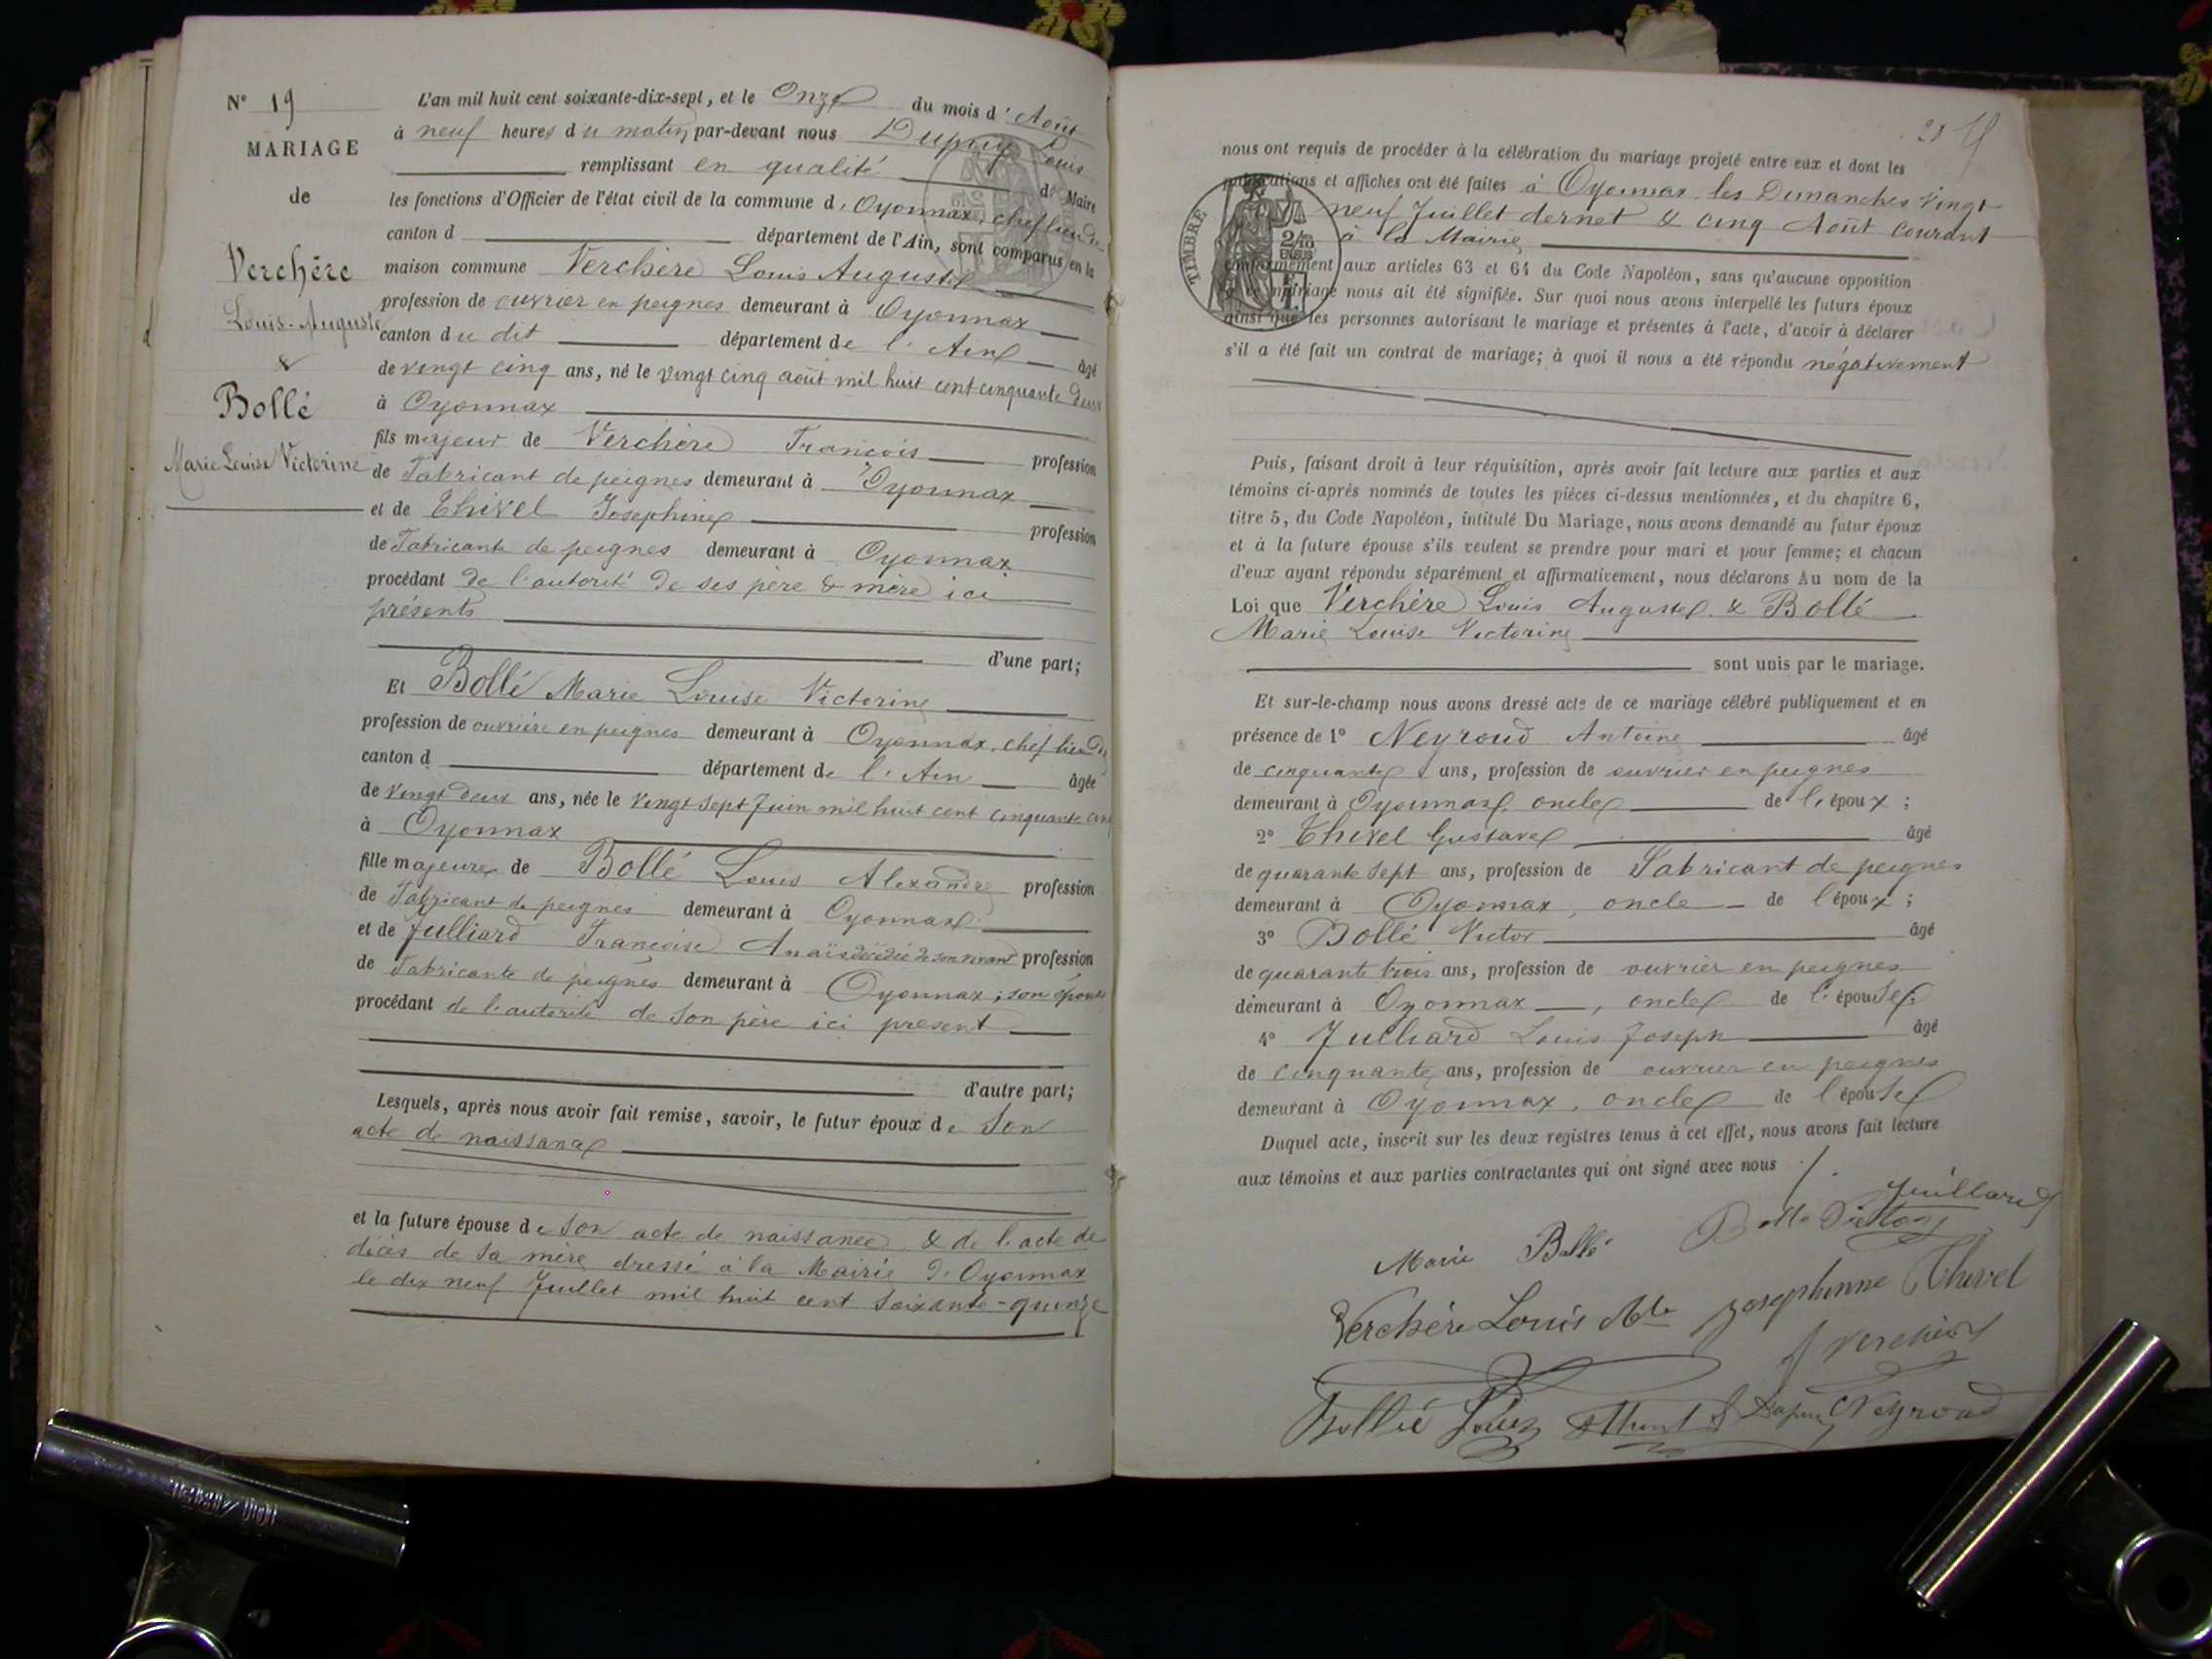 N° 19
MARIAGE
de
Verchère
Louis-Auguste
&
Bollé
Marie Louise Victorine
L'an mil huit cent soixante-dix-sept, et le Onze du mois d'Août
à neuf heures du matin, par-devant nous Dupuy Louis
remplissant en qualité de Maire
les fonctions d'Officier de l'état civil de la commune d'Oyonnax, chef lieu du
canton d département de l'Ain, sont comparus en la
maison commune Verchère Louis Auguste
profession de ouvrier en peignes demeurant à Oyonnax
canton du dit département de l'Ain âgé
de vingt cinq ans, né le vingt cinq août mil huit cent cinquante deux
à Oyonnax
fils majeur de Verchère François profession
de Fabricant de peignes demeurant à Oyonnax
et de Thivel Josephine profession
de Fabricante de peignes demeurant à Oyonnax
procédant de l'autorité de ses père & mère ici
présents
d'une part;
Et Bollé Marie Louise Victorine
profession de ouvrière en peignes demeurant à Oyonnax, chef lieu du
canton d département de l'Ain âgée
de vingt deux ans, née le vingt sept Juin mil huit cent cinquante cinq
à Oyonnax
fille majeure de Bollé Louis Alexandre profession
de Fabricant de peignes demeurant à Oyonnax
et de Julliard Françoise Anaïs décédée de son vivant profession
de Fabricante de peignes demeurant à Oyonnax; son épouse
procédant de l'autorité de son père ici présent
d'autre part;
Lesquels, après nous avoir fait remise, savoir, le futur époux de Son
acte de naissance
et la future épouse de Son acte de naissance & de l'acte de
décès de sa mère dressé à la Mairie d'Oyonnax
le dix neuf Juillet mil huit cent soixante-quinze
25
nous ont requis de procéder à la célébration du mariage projeté entre eux et dont les
publications et affiches ont été faites à Oyonnax les Dimanches vingt
neuf Juillet dernet & cinq Août courant
à la Mairie
TIMBRE
2/10
EN SUS
conformément aux articles 63 et 64 du Code Napoléon, sans qu'aucune opposition
à ce mariage nous ait été signifiée. Sur quoi nous avons interpellé les futurs époux
ainsi que les personnes autorisant le mariage et présentes à l'acte, d'avoir à déclarer
s'il a été fait un contrat de mariage; à quoi il nous a été répondu négativement
Puis, faisant droit à leur réquisition, après avoir fait lecture aux parties et aux
témoins ci-après nommés de toutes les pièces ci-dessus mentionnées, et du chapitre 6,
titre 5, du Code Napoléon, intitulé Du Mariage, nous avons demandé au futur époux
et à la future épouse s'ils veulent se prendre pour mari et pour femme; et chacun
d'eux ayant répondu séparément et affirmativement, nous déclarons Au nom de la
Loi que Verchère Louis Auguste & Bollé
Marie Louise Victorine
sont unis par le mariage.
Et sur-le-champ nous avons dressé acte de ce mariage célébré publiquement et en
présence de 1° Neyroud Antoine âgé
de cinquante ans, profession de ouvrier en peignes
demeurant à Oyonnax, oncle de l'époux;
2° Thivel Gustave âgé
de quarante sept ans, profession de Fabricant de peignes
demeurant à Oyonnax, oncle de l'époux;
3° Bollé Victor âgé
de quarante trois ans, profession de ouvrier en peignes
demeurant à Oyonnax, oncle de l'épouse;
4° Julliard Louis Joseph âgé
de cinquante ans, profession de ouvrier en peignes
demeurant à Oyonnax, oncle de l'épouse
Duquel acte, inscrit sur les deux registres tenus à cet effet, nous avons fait lecture
aux témoins et aux parties contractantes qui ont signé avec nous
Juillard
Marie Bollé Bolle Victor
Verchère Louis Josephinne Thivel
Verchère
Bollé Louis Dupuy Neyroud